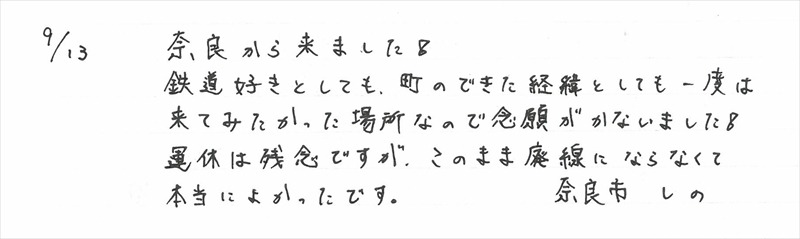 9/13
奈良から来ました8
鉄道好きとしても、町のできた経緯としても一度は
来てみたかった場所なので念願がかないました8
運休は残念ですが、このまま廃線にならなくて
本当によかったです。 奈良市 しの